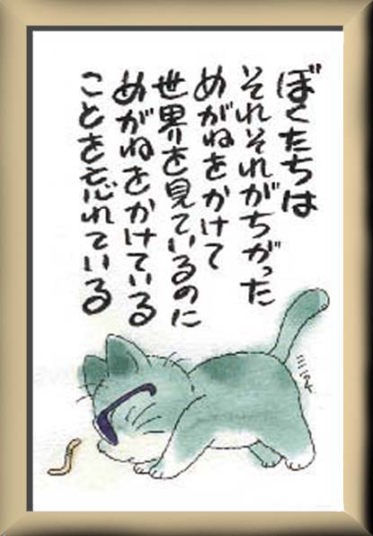 ぼくたちは
それそれがちがった
めがねをかけて
世界を見ているのに
めがねをかけている
ことを忘れている